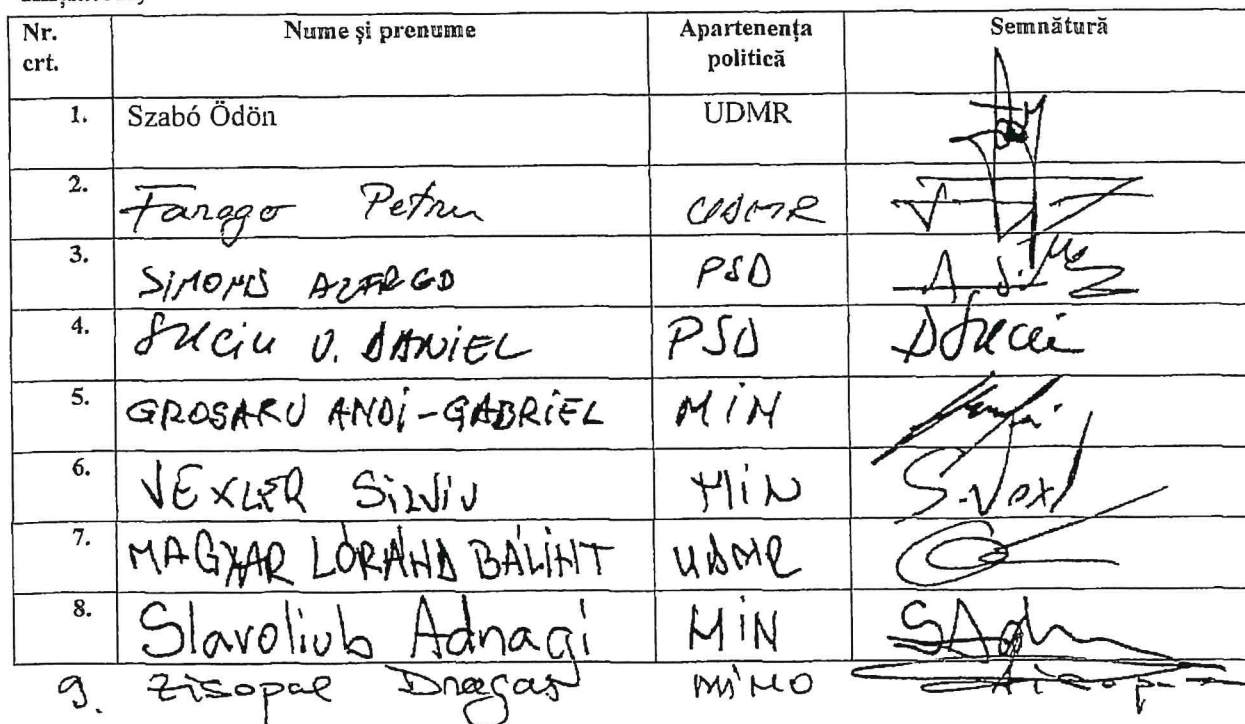 Nr. crt. Nume și prenume Apartenența politică Semnătură
1. Szabó Ödön UDMR
2. Farago Petru UDMR
3. SIMONIS ALFRED PSD
4. Suciu V. DANIEL PSD DSuciu
5. GROSARU ANDI-GABRIEL MIN
6. VEXLER SILVIU MIN S.Vexl
7. MAGYAR LÓRÁND BÁLINT UDMR
8. Slavoliub Adnagi MIN SAdn
9. Zisopol Dragoș MINO